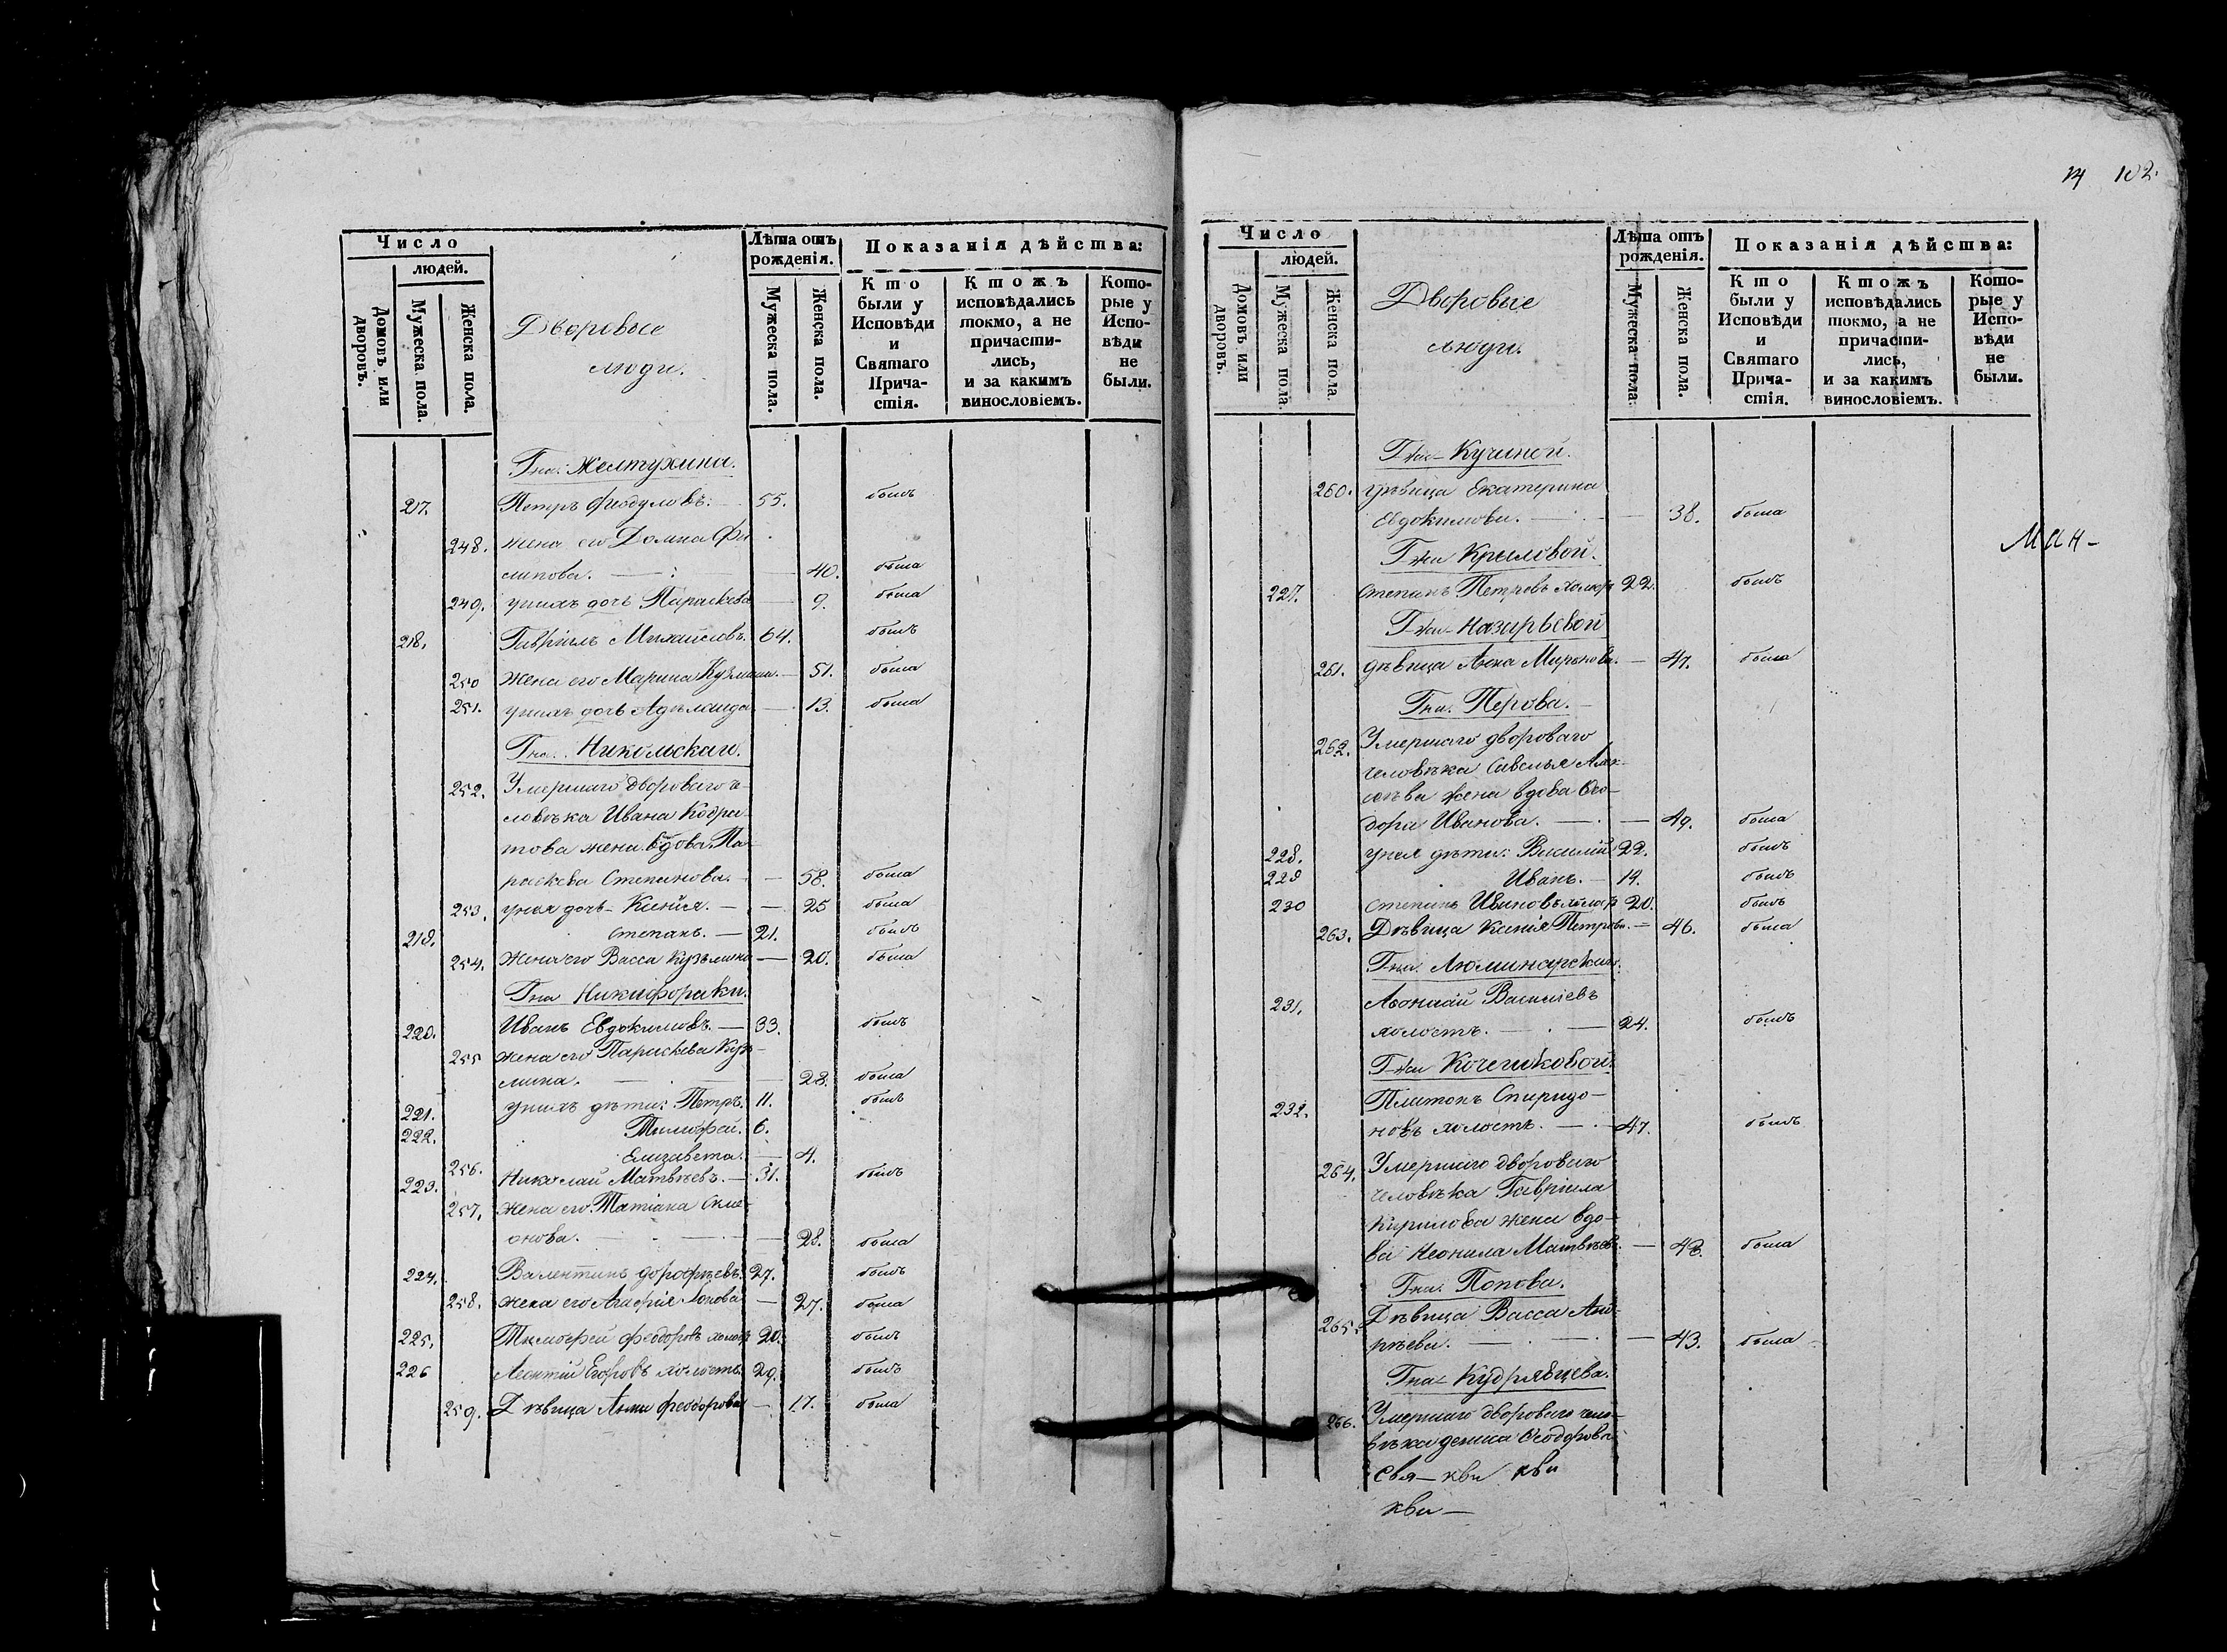 Число
людей.
Домовъ или дворовъ.
Мужеска пола.
Женска пола.
Дворовые
люди.
Лѣта отъ рожденія.
Мужеска пола.
Женска пола.
Показанія дѣйства:
Кто были у Исповѣди и Святаго Причастія.
Ктожъ исповѣдались токмо, а не причастились, и за какимъ винословіемъ.
Которые у Исповѣди не были.
Гна: Желтухина.
217. Петръ Феодуловъ. 55. былъ
248. жена его Домна Фи
липова. — 40. была
249. у нихъ дочь Параскева — 9. была
218. Гавріилъ Михайловъ. 64. былъ
250 Жена его Марина Кузмина. — 51. была
251. у нихъ дочь Аделаида — 13. была
Гна. Никольскаго.
252. Умершаго дворового че-
ловѣка Ивана Кодра-
това жена вдова Па-
раскева Степанова. — 58. была
253. у нея дочь — Ксенія. — 25 была
219. Степанъ. — 21. былъ
254. Жена его Васса Кузьмина — 20. была
Гна Никифораки.
220. Иванъ Евдокимовъ. — 33. былъ
255 жена его Параскева Куз-
мина. — 28. была
221. у нихъ дѣти: Петръ. 11. былъ
222. Тимофей. 6.
256. Елизавета. — 4.
223. Николай Матвѣевъ. — 31. былъ
257. Жена его Татіана Симе-
онова. — 28. была
224. Валентинъ Дорофѣевъ. 27. былъ
258. жена его Агафія — 27. была
225. Тимофей Феодоровъ холостъ 20. былъ
226 Леонтій Егоровъ холостъ. 29. былъ
259. Дѣвица Анна Феодорова — 17. была
14 102.
Число
людей.
Домовъ или дворовъ.
Мужеска пола.
Женска пола.
Дворовые
люди.
Лѣта отъ рожденія.
Мужеска пола.
Женска пола.
Показанія дѣйства:
Кто были у Исповѣди и Святаго Причастія.
Ктожъ исповѣдались токмо, а не причастились, и за какимъ винословіемъ.
Которые у Исповѣди не были.
Гжи Кучиной.
260. дѣвица Екатерина
Евдокимова. — 38. была
Ман-
Гжи Крыловой.
227. Степанъ Петровъ холост 22. былъ
Гжи Назарьевой
261. дѣвица Анна Миронова. — 47. была
Гна. Перова.
262. Умершаго двороваго
человѣка Савелья Алек-
сѣева жена вдова Фео-
дора Иванова. — 49. была
228. у нея дѣти: Василій 22. былъ
229 Иванъ. — 19. былъ
230 Степанъ Ивановъ холостъ 20. былъ
263. Дѣвица Ксенія Петрова. — 46. была
Гна. Люминарскаго.
231. Афонасій Василіевъ
холостъ. — 24. былъ
Гжи Кочешковой.
232. Платонъ Спиридо-
новъ холостъ. — 47. былъ
264. Умершаго двороваго
человѣка Гавріила
Кирилова жена вдо-
ва Неонила Матвѣева. — 48. была
Гна. Попова.
265. Дѣвица Васса Анд-
рѣева. — 43. была
Гна Кудрявцева.
266. Умершаго двороваго чело-
вѣка Дениса Феодорова
Свя— кви кви
кви—